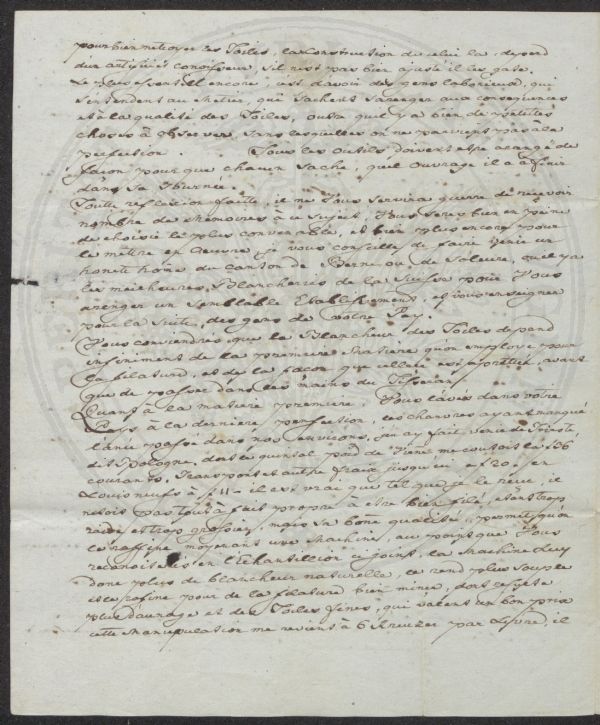 pour bien netoyer les Toiles, la Construction de celui la, depend
d'un artiste et conoisseur, s'il n'est pas bien ajusté il les gate.
Le plus essentiel encore, c'est d'avoir des gens laborieux, qui
s'entendent au metier, qui sachent s'aranger aux consequences
et à la qualité des Toiles, outre qu'il y a bien de petites
choses à observer, sans lesquelles on ne parvient pas à la
perfection. Tous les outils doivent etre arangé de
façon pour que chacun sache, quel ouvrage il a à finir
dans sa Journée.
Toute reflexion faite, il ne Vous servira guerre de recevoir
nombre de memoires à ce sujet, Vous serés bien en peine
de choisir le plus convenable, et bien plus encore pour
le mettre en oeuvre, je vous conseille de faire venir un
honete home du canton de Berne ou de Soleure, ou il y a
les meilleures Blancheries de la Suisse pour Vous
aranger un semblable Etablissement, et pour enseigner
pour la suite, des gens de votre Pay.
Vous conviendrés que la Blancheur des Toiles depend
infiniment de la premiere matiere qu'on employe pour
la filature, et de la façon que celle est aprettée, avant
que de passer dans les mains du Tisseran.
Quant à la matiere premiere, Vous l'avés dans votre
Pays à la derniere perfection, les chanvres ayant manqué
l'année passé dans nos environs, j'en ay fait venir de Trieste
dit Bologne, dont le quintal poid de Viene me coutoit
courants, Transport et autre fraix jusqu'icy en
Louis neufs à f 11 - il est vrai que tel que je le reçu, il
n'etoit pas tout à fait propre à etre bien filé, etant trop
raide et trop grossier, mais sa bone qualité, permet qu'on
le raffine moyenant une Machine, au point que Vous
reconoitrés en l'Echantillion ci joint, la Machine luy
done plus de blancheur naturelle, le rend plus souple
et le rafine pour de la filature bien mince, dont
plus d'aunage et des Toiles fines, qui valent un bon prix
cette manipulation me revient à 6 Kreuzer par Livre, il